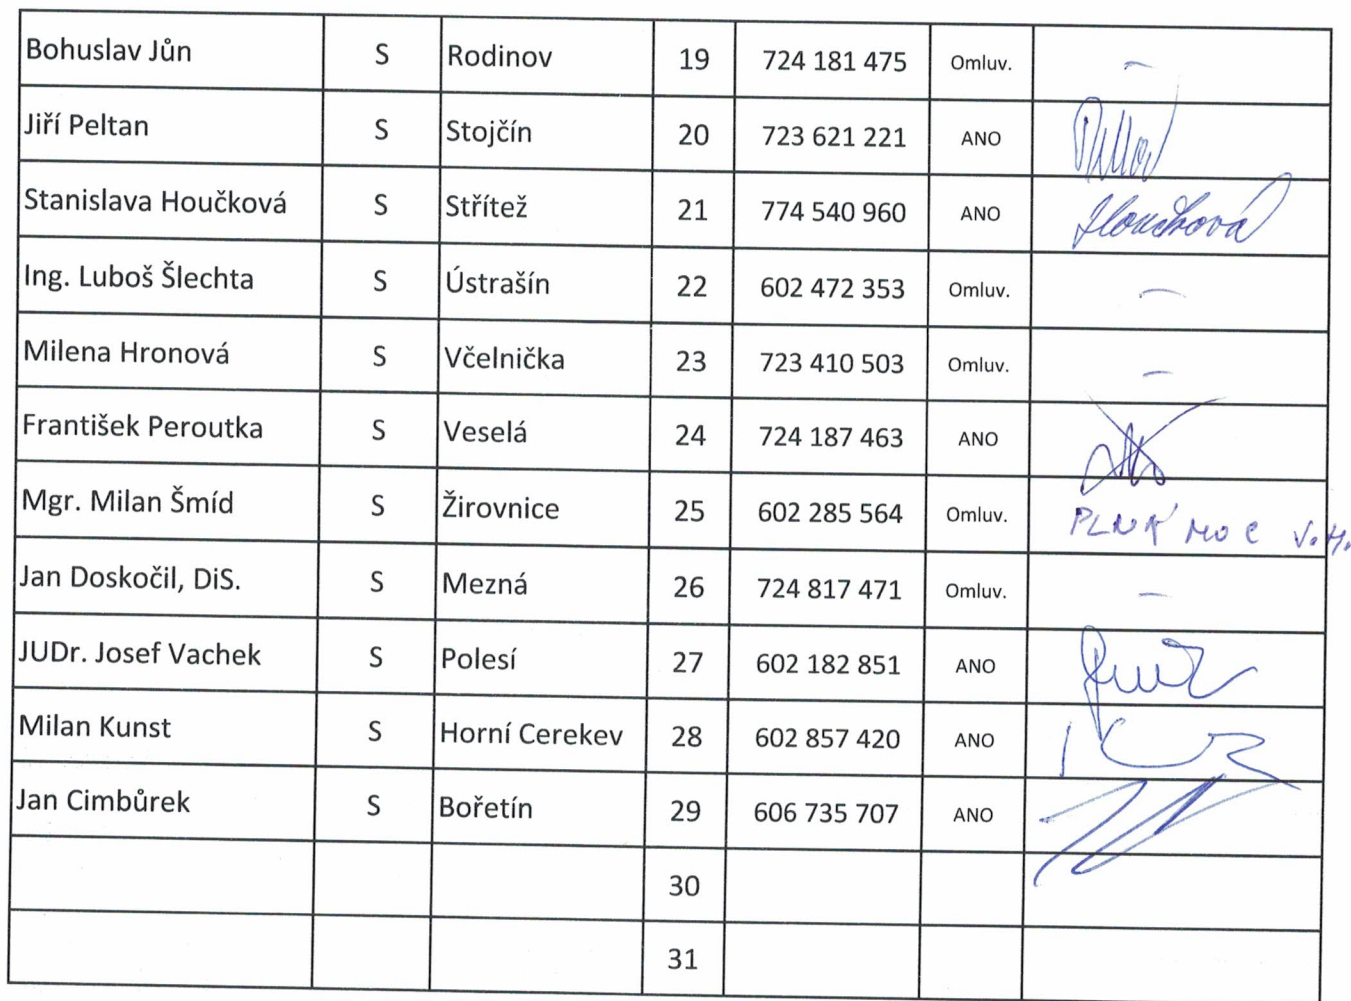 Bohuslav Jůn S Rodinov 19 724 181 475 Omluv. –
Jiří Peltan S Stojčín 20 723 621 221 ANO
Stanislava Houčková S Střítež 21 774 540 960 ANO Houčková
Ing. Luboš Šlechta S Ústrašín 22 602 472 353 Omluv. –
Milena Hronová S Včelnička 23 723 410 503 Omluv. –
František Peroutka S Veselá 24 724 187 463 ANO
Mgr. Milan Šmíd S Žirovnice 25 602 285 564 Omluv. PLNÁ MOC V.H.
Jan Doskočil, DiS. S Mezná 26 724 817 471 Omluv. –
JUDr. Josef Vachek S Polesí 27 602 182 851 ANO
Milan Kunst S Horní Cerekev 28 602 857 420 ANO
Jan Cimbůrek S Bořetín 29 606 735 707 ANO
30
31